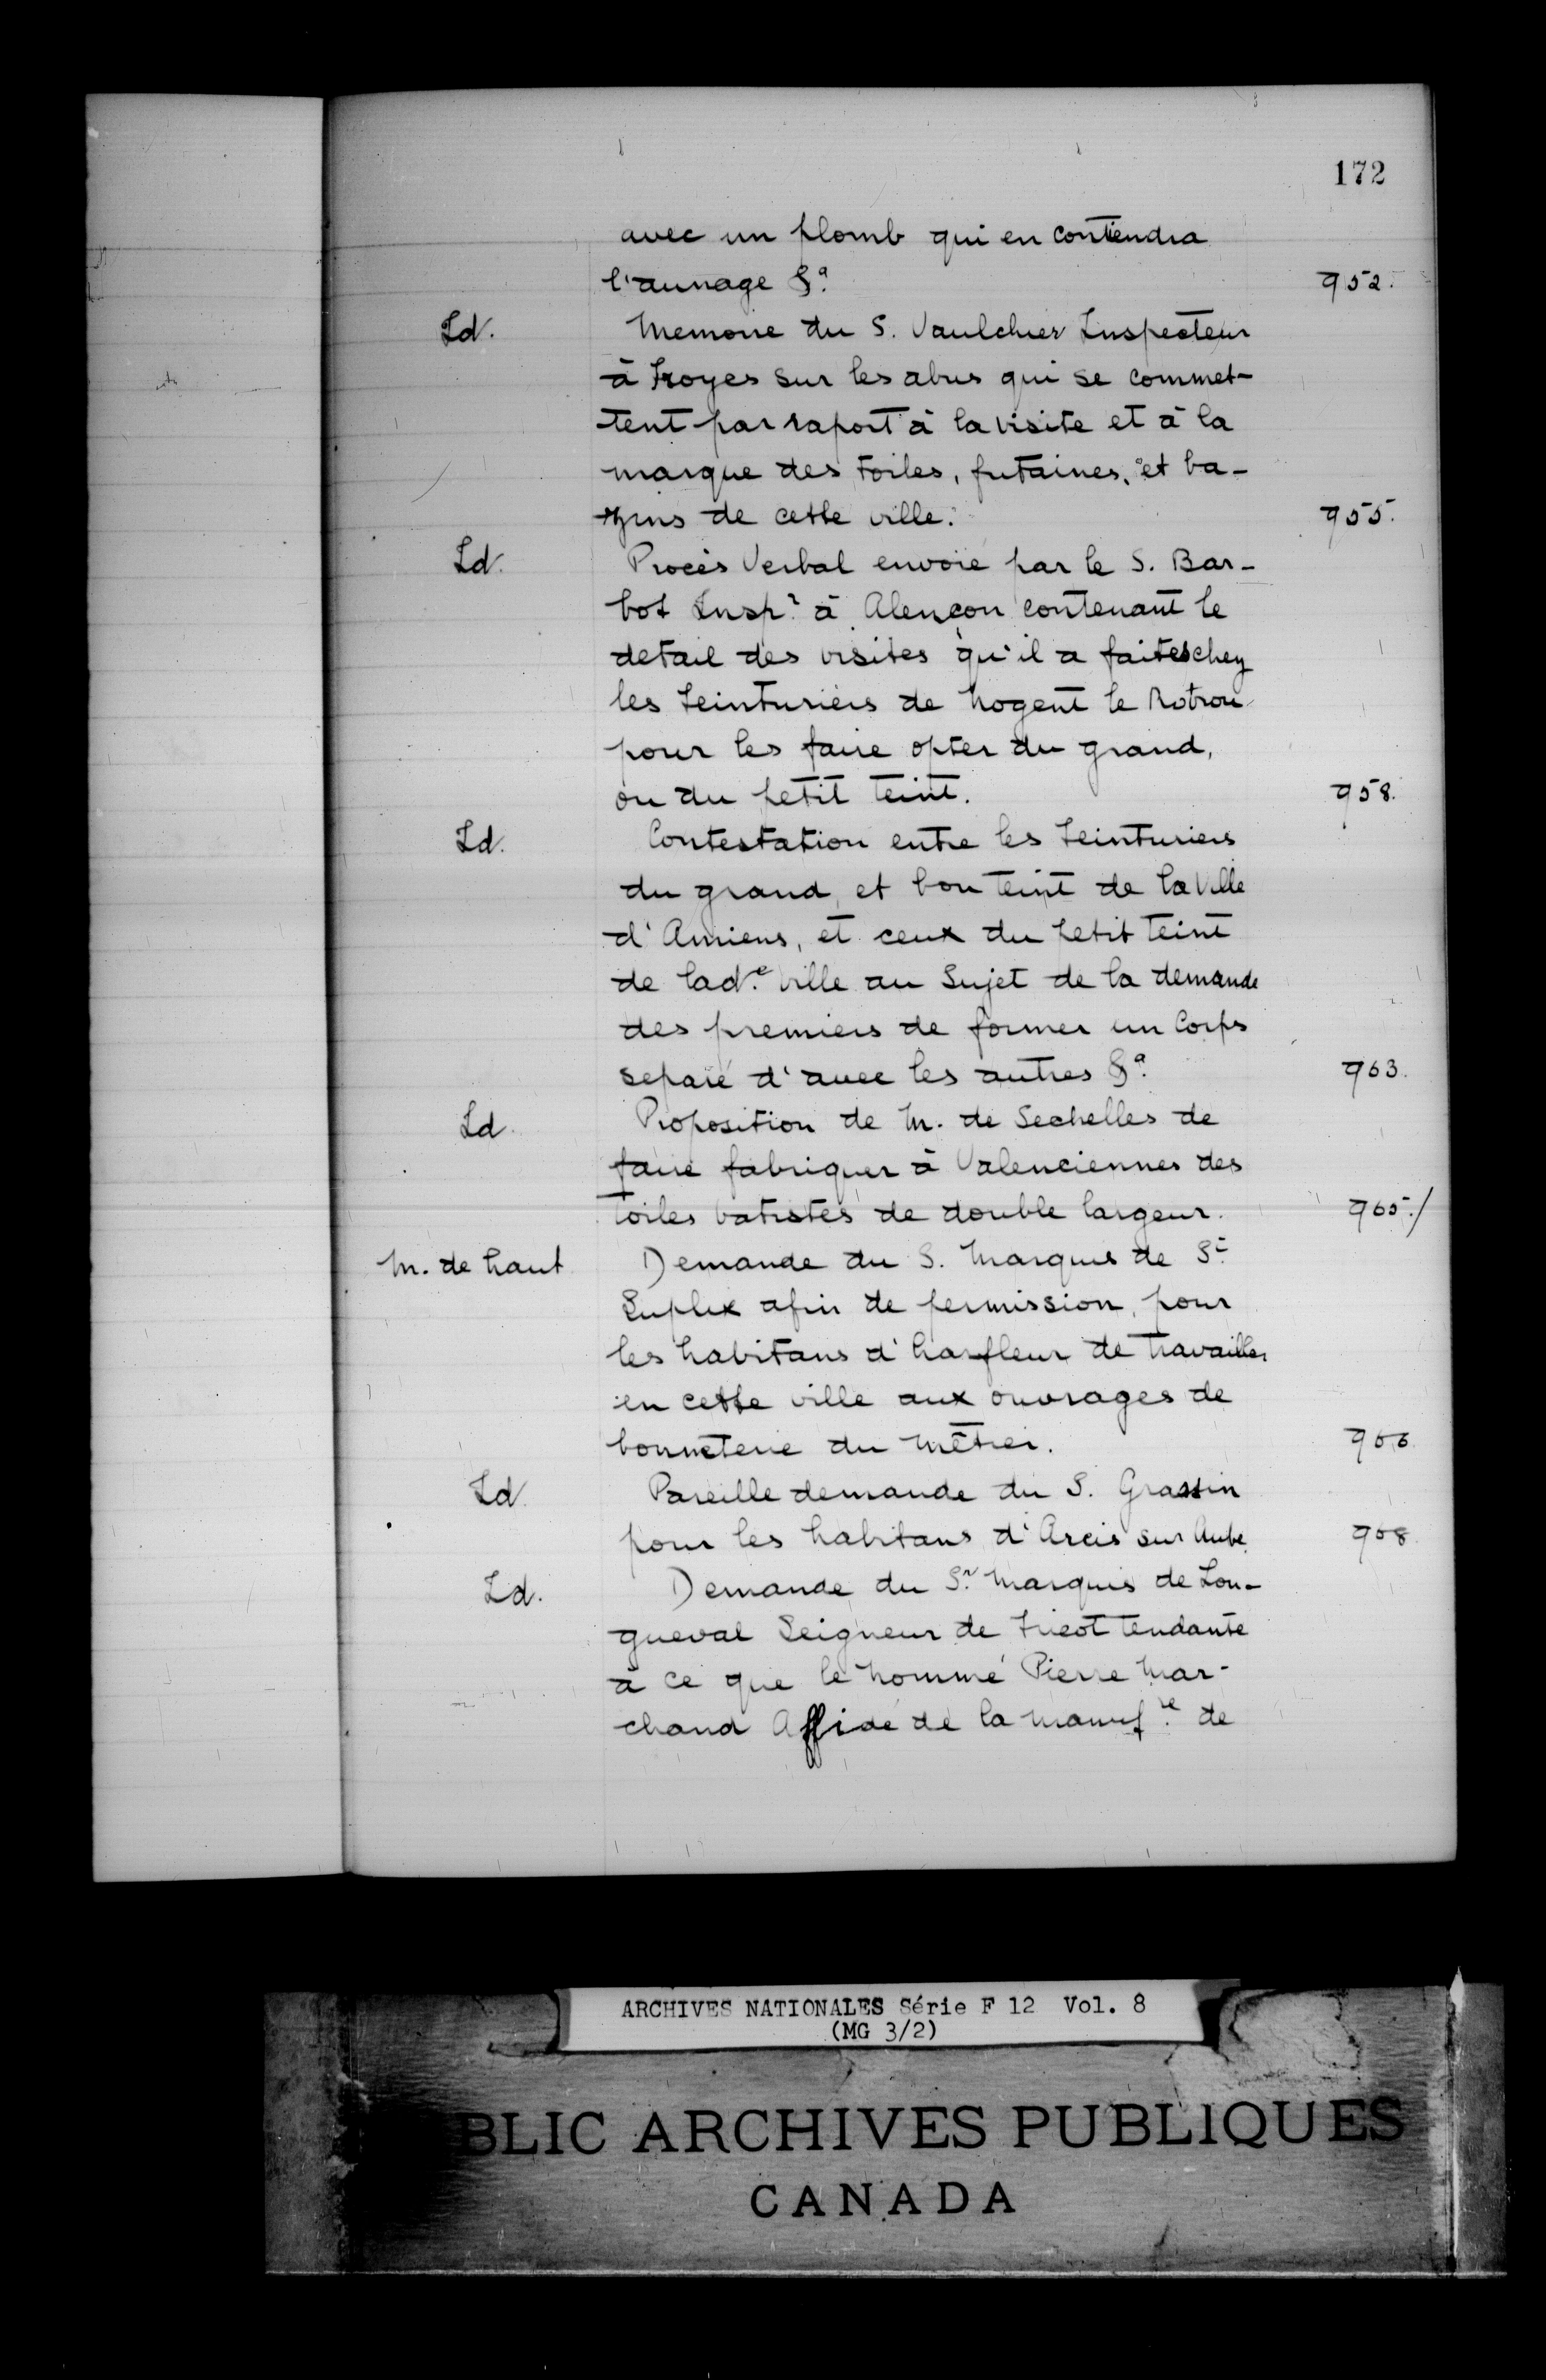 172
avec un plomb qui en contiendra
l'aunage &a. 952.
Id. Memoire du S. Vaulchier Inspecteur
à Troyes sur les abus qui se commet-
tent par raport à la visite et à la
marque des toiles, futaines, et ba-
zins de cette ville. 955.
Id. Procès Verbal envoié par le S. Bar-
bot Inspr. à Alençon contenant le
detail des visites qu'il a faites chez
les teinturiers de Nogent le Rotrou
pour les faire opter du grand,
ou du petit teint. 958.
Id. Contestation entre les teinturiers
du grand, et bon teint de la Ville
d'Amiens, et ceux du petit teint
de lad.e ville au Sujet de la demande
des premiers de former un Corps
separé d'avec les autres &a. 963.
Id. Proposition de M. de Sechelles de
faire fabriquer à Valenciennes des
toiles batistes de double largeur. 965./
M. de haut Demande du S. Marquis de St.
Suplix afin de permission, pour
les habitans d'harfleur de travailler
en cette ville aux ouvrages de
bonneterie du métier. 966.
Id. Pareille demande du S. Grassin
pour les habitans d'Arcis sur Aube 968.
Id. Demande du Sr. Marquis de Lon-
gueval Seigneur de Tricot tendante
à ce que le nommé Pierre Mar-
chand Affidé de la manuf.re de
ARCHIVES NATIONALES Série F 12 Vol. 8
(MG 3/2)
BLIC ARCHIVES PUBLIQUES
CANADA